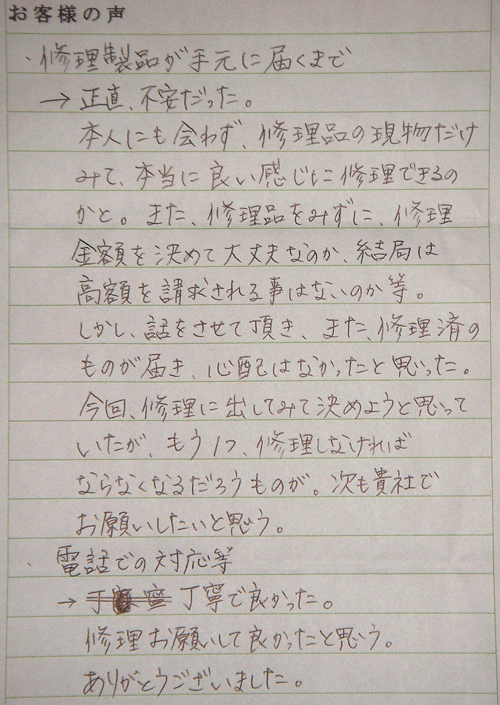 お客様の声
・修理製品が手元に届くまで
→ 正直、不安だった。
本人にも会わず、修理品の現物だけ
みて、本当に良い感じに修理できるの
かと。また、修理品をみずに、修理
金額を決めて大丈夫なのか、結局は
高額を請求される事はないのか等。
しかし、話をさせて頂き、また、修理済の
ものが届き、心配はなかったと思った。
今回、修理に出してみて決めようと思って
いたが、もう1つ、修理しなければ
ならなくなるだろうものが。次も貴社で
お願いしたいと思う。
・電話での対応等
→ 丁寧で良かった。
修理お願いして良かったと思う。
ありがとうございました。